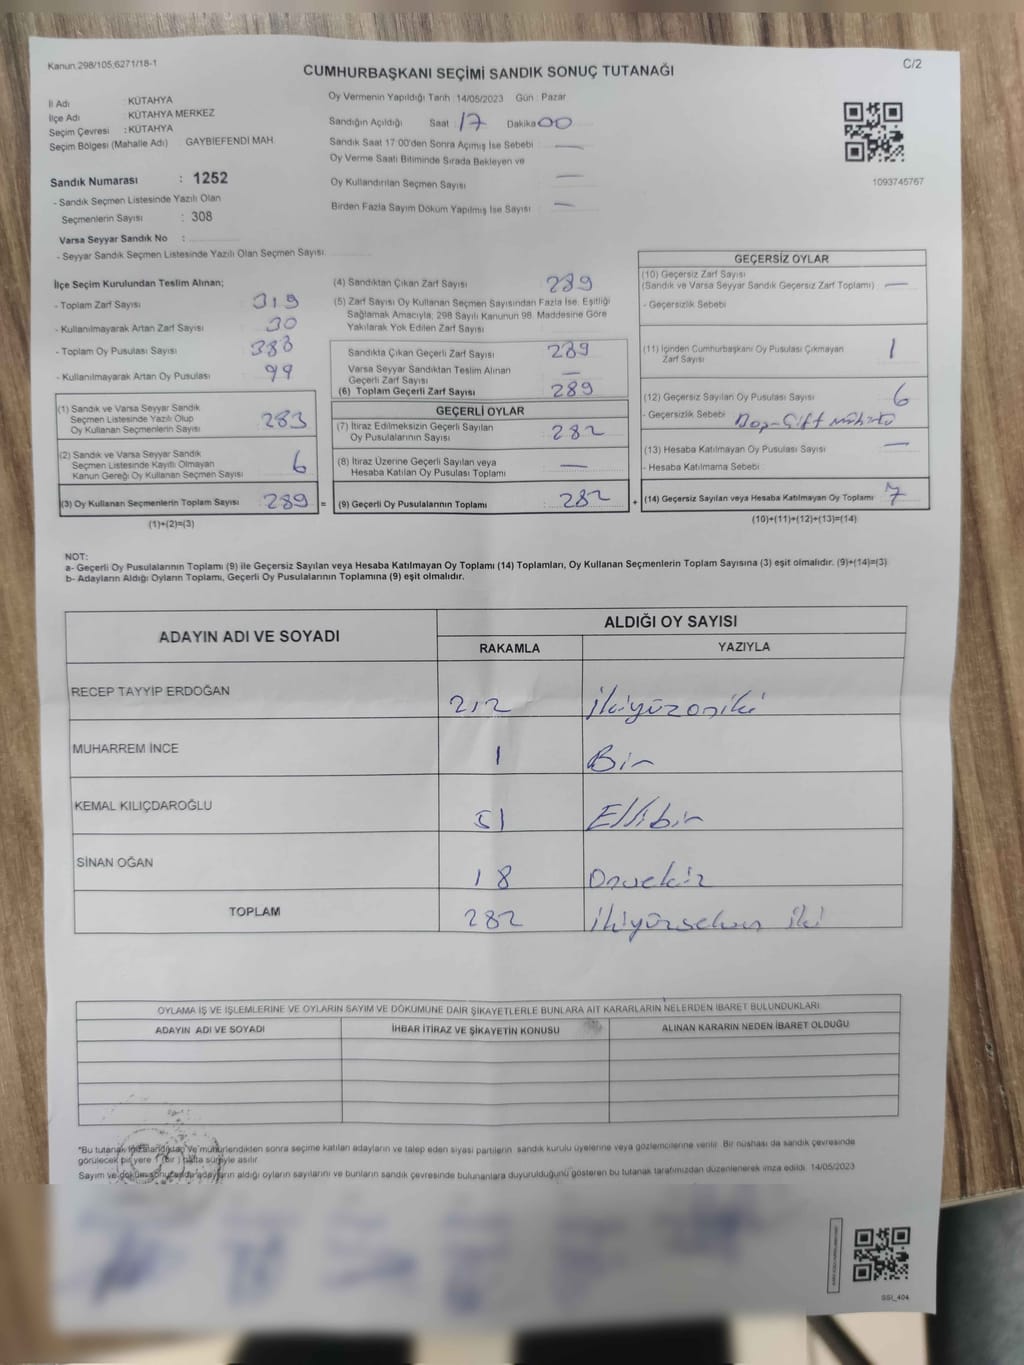 Kanun.298/105,6271/18-1
C/2
CUMHURBAŞKANI SEÇİMİ SANDIK SONUÇ TUTANAĞI
İl Adı : KÜTAHYA
İlçe Adı : KÜTAHYA MERKEZ
Seçim Çevresi : KÜTAHYA
Seçim Bölgesi (Mahalle Adı) GAYBİEFENDİ MAH.
Sandık Numarası : 1252
- Sandık Seçmen Listesinde Yazılı Olan
Seçmenlerin Sayısı : 308
Varsa Seyyar Sandık No :
- Seyyar Sandık Seçmen Listesinde Yazılı Olan Seçmen Sayısı
Oy Vermenin Yapıldığı Tarih :14/05/2023 Gün : Pazar
Sandığın Açıldığı Saat 17 Dakika 00
Sandık Saat 17.00'den Sonra Açımış İse Sebebi —
Oy Verme Saati Bitiminde Sırada Bekleyen ve
Oy Kullandırılan Seçmen Sayısı —
Birden Fazla Sayım Döküm Yapılmış İse Sayısı —
1093745767
İlçe Seçim Kurulundan Teslim Alınan;
- Toplam Zarf Sayısı 319
- Kullanılmayarak Artan Zarf Sayısı 30
- Toplam Oy Pusulası Sayısı 388
- Kullanılmayarak Artan Oy Pusulası 99
(1) Sandık ve Varsa Seyyar Sandık
Seçmen Listesinde Yazılı Olup
Oy Kullanan Seçmenlerin Sayısı 283
(2) Sandık ve Varsa Seyyar Sandık
Seçmen Listesinde Kayıtlı Olmayan
Kanun Gereği Oy Kullanan Seçmen Sayısı 6
(3) Oy Kullanan Seçmenlerin Toplam Sayısı 289 =
(1)+(2)=(3)
(4) Sandıktan Çıkan Zarf Sayısı 289
(5) Zarf Sayısı Oy Kullanan Seçmen Sayısından Fazla İse, Eşitliği
Sağlamak Amacıyla; 298 Sayılı Kanunun 98. Maddesine Göre
Yakılarak Yok Edilen Zarf Sayısı
Sandıkta Çıkan Geçerli Zarf Sayısı 289
Varsa Seyyar Sandıktan Teslim Alınan
Geçerli Zarf Sayısı —
(6) Toplam Geçerli Zarf Sayısı 289
GEÇERLİ OYLAR
(7) İtiraz Edilmeksizin Geçerli Sayılan
Oy Pusulalarının Sayısı 282
(8) İtiraz Üzerine Geçerli Sayılan veya
Hesaba Katılan Oy Pusulası Toplamı —
(9) Geçerli Oy Pusulalarının Toplamı 282 +
GEÇERSİZ OYLAR
(10) Geçersiz Zarf Sayısı
(Sandık ve Varsa Seyyar Sandık Geçersiz Zarf Toplamı) —
- Geçersizlik Sebebi
(11) İçinden Cumhurbaşkanı Oy Pusulası Çıkmayan
Zarf Sayısı 1
(12) Geçersiz Sayılan Oy Pusulası Sayısı 6
- Geçersizlik Sebebi Boş-Çift mühürlü
(13) Hesaba Katılmayan Oy Pusulası Sayısı —
- Hesaba Katılmama Sebebi
(14) Geçersiz Sayılan veya Hesaba Katılmayan Oy Toplamı 7
(10)+(11)+(12)+(13)=(14)
NOT:
a- Geçerli Oy Pusulalarının Toplamı (9) ile Geçersiz Sayılan veya Hesaba Katılmayan Oy Toplamı (14) Toplamları, Oy Kullanan Seçmenlerin Toplam Sayısına (3) eşit olmalıdır. (9)+(14)=(3)
b- Adayların Aldığı Oyların Toplamı, Geçerli Oy Pusulalarının Toplamına (9) eşit olmalıdır.
ADAYIN ADI VE SOYADI ALDIĞI OY SAYISI
RAKAMLA YAZIYLA
RECEP TAYYİP ERDOĞAN 212 İkiyüzoniki
MUHARREM İNCE 1 Bir
KEMAL KILIÇDAROĞLU 51 Ellibir
SİNAN OĞAN 18 Onsekiz
TOPLAM 282 İkiyüzseksen iki
OYLAMA İŞ VE İŞLEMLERİNE VE OYLARIN SAYIM VE DÖKÜMÜNE DAİR ŞİKAYETLERLE BUNLARA AİT KARARLARIN NELERDEN İBARET BULUNDUKLARI
ADAYIN ADI VE SOYADI İHBAR İTİRAZ VE ŞİKAYETİN KONUSU ALINAN KARARIN NEDEN İBARET OLDUĞU
*Bu tutanak imzalandıktan ve mühürlendikten sonra seçime katılan adayların ve talep eden siyasi partilerin sandık kurulu üyelerine veya gözlemcilerine verilir. Bir nüshası da sandık çevresinde
görülecek bir yere 1 (bir) hafta süreyle asılır.
Sayım ve döküm sonucunda adayların aldığı oyların sayılarını ve bunların sandık çevresinde bulunanlara duyurulduğunu gösteren bu tutanak tarafımızdan düzenlenerek imza edildi. 14/05/2023
SSI_404